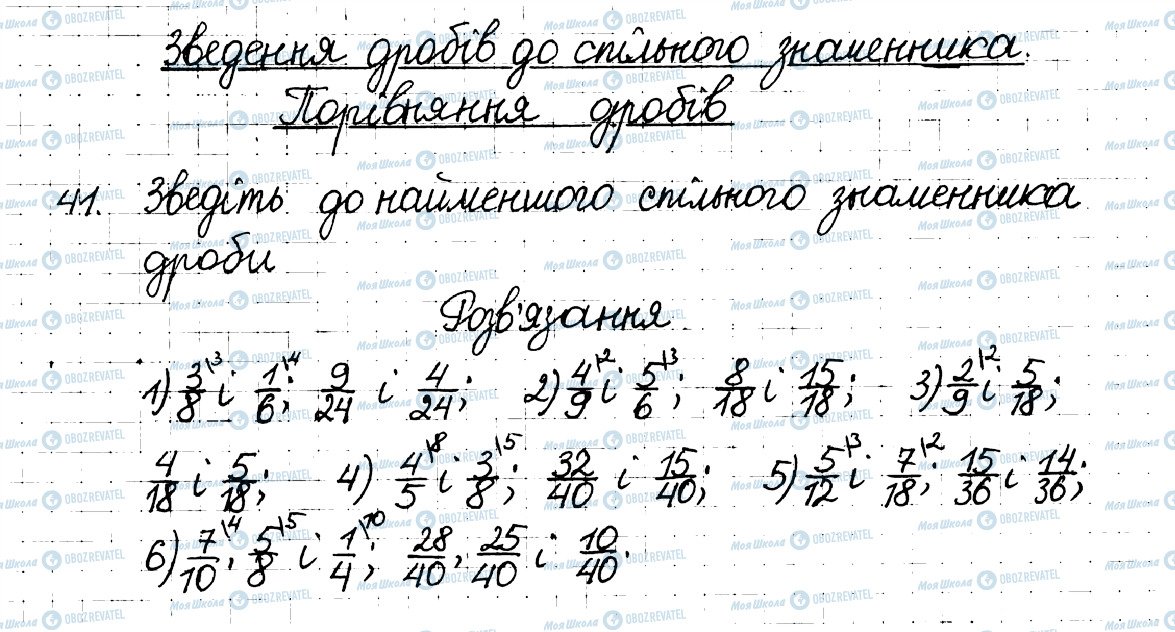 Зведення дробів до спільного знаменника.
Порівняння дробів
41. Зведіть до найменшого спільного знаменника
дроби
Розв'язання
1) 3/8 \3 і 1/6 \4; 9/24 і 4/24; 2) 4/9 \2 і 5/6 \3; 8/18 і 15/18; 3) 2/9 \2 і 5/18;
4/18 і 5/18; 4) 4/5 \8 і 3/8 \5; 32/40 і 15/40; 5) 5/12 \3 і 7/18 \2; 15/36 і 14/36;
6) 7/10 \4, 5/8 \5 і 1/4 \10; 28/40, 25/40 і 10/40.
Моя Школа OBOZREVATEL